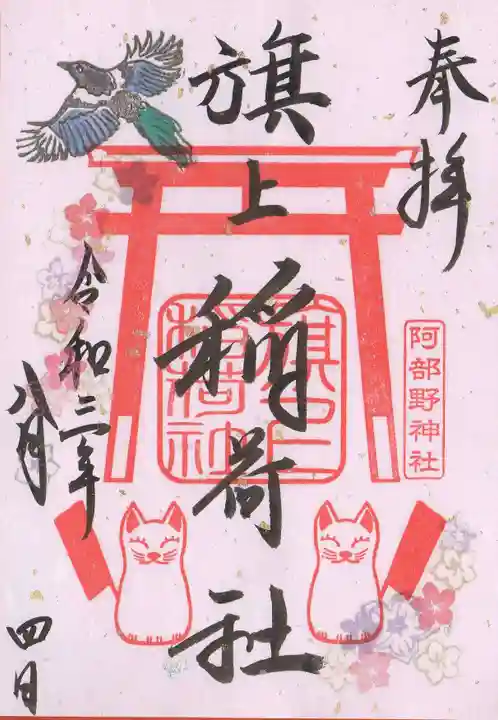 奉拝
阿部野神社
旗上稲荷社
旗上
稲荷社
令和三年
八月
四日